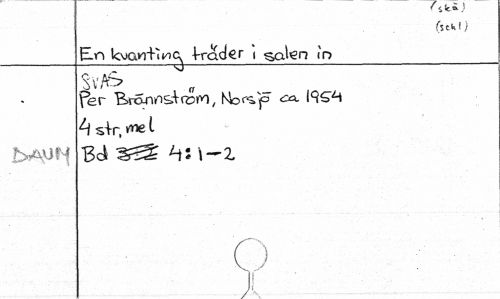 (skä)
(schl)
En kvanting träder i salen in
SVAS
Per Brännström, Norsjö ca 1954
4 str, mel
DAUM Bd 4:1-2